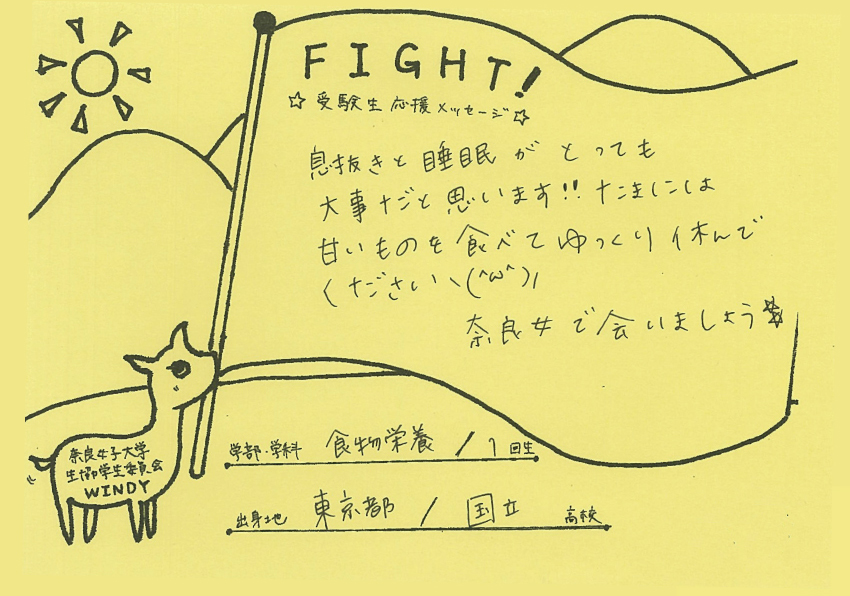 FIGHT!
☆受験生応援メッセージ☆
息抜きと睡眠がとっても
大事だと思います!! たまには
甘いものを食べてゆっくり休んで
くださいヽ(^ω^)ﾉ
奈良女で会いましょう☆
学部・学科 食物栄養 / 1 回生
奈良女子大学
生協学生委員会
WINDY
出身地 東京都 / 国立 高校